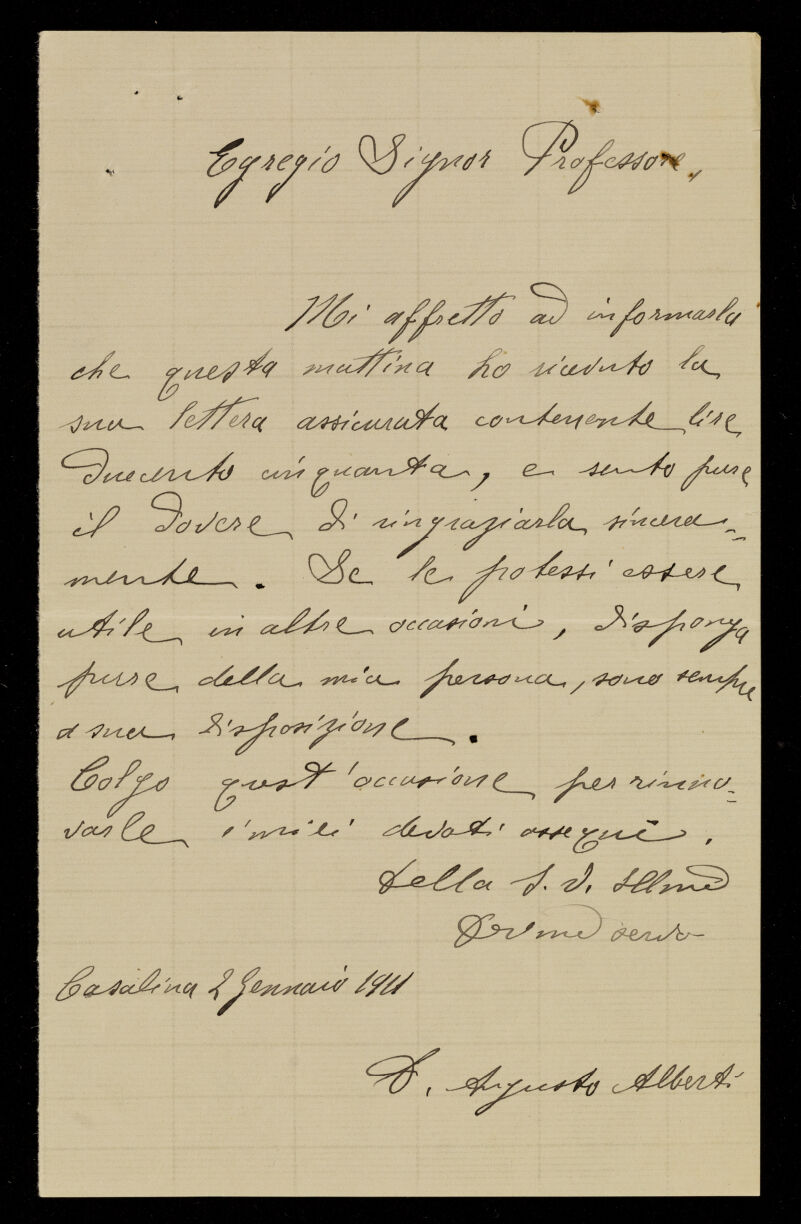 Egregio Signor Professore,
Mi affretto ad informarla
che questa mattina ho ricevuto la
sua lettera assicurata contenente lire
duecento cinquanta, e sento pure
il dovere di ringraziarla sincera-
mente. Se le potessi essere
utile in altre occasioni, disponga
purre della mia persona, sono sempre
a sua disposizione.
Colgo quest'occasione per rinno-
varle i miei devoti ossequi.
Della S. V. Illma
Devma servo
Casalina 2 Gennaio 1911
D. Augusto Alberti